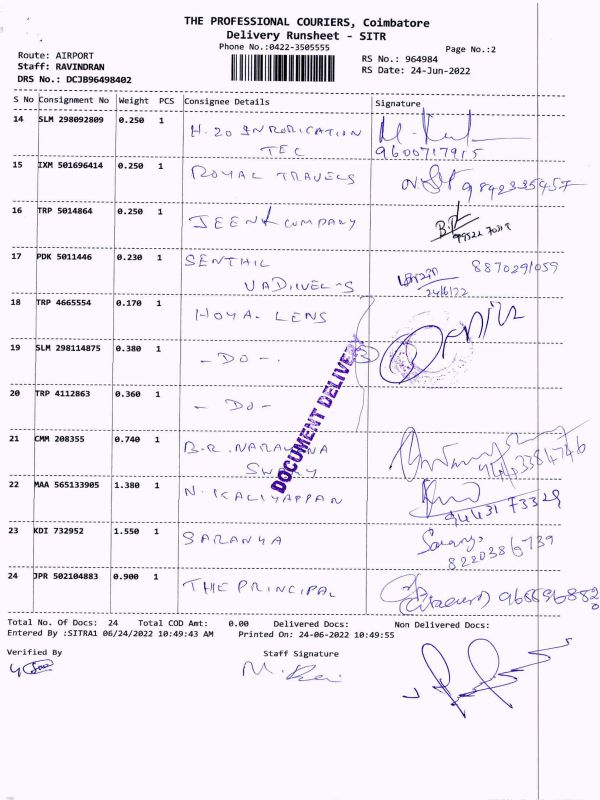 THE PROFESSIONAL COURIERS, Coimbatore
Delivery Runsheet - SITR
Phone No.:0422-3505555
Page No.:2
Route: AIRPORT
Staff: RAVINDRAN
DRS No.: DCJB96498402
RS No.: 964984
RS Date: 24-Jun-2022
S No Consignment No Weight PCS Consignee Details Signature
14 SLM 298092809 0.250 1 H.20
TEC
9600717915
15 IXM 501696414 0.250 1 ROYAL TRAVELS 9842335457
16 TRP 5014864 0.250 1 COMPANY
17 PDK 5011446 0.230 1 SENTHIL 8870291059
VADIVEL-S 24/6/22
18 TRP 4665554 0.170 1 HOYA LENS
19 SLM 298114875 0.380 1 - DO -.
20 TRP 4112863 0.360 1 - DO -
DOCUMENT DELIVERY
21 CMM 208355 0.740 1 B.R. NARAYANA
SWAMY
22 MAA 565133905 1.380 1 N. KALIYAPPAN
94431 73329
23 KDI 732952 1.550 1 SARANYA
8220386739
24 JPR 502104883 0.900 1 THE PRINCIPAL
Total No. Of Docs: 24 Total COD Amt: 0.00 Delivered Docs: Non Delivered Docs:
Entered By :SITRA1 06/24/2022 10:49:43 AM Printed On: 24-06-2022 10:49:55
Verified By Staff Signature